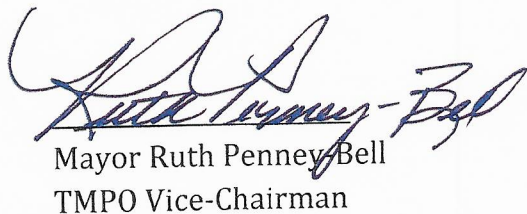 Ruth Penney-Bell
Mayor Ruth Penney-Bell
TMPO Vice-Chairman